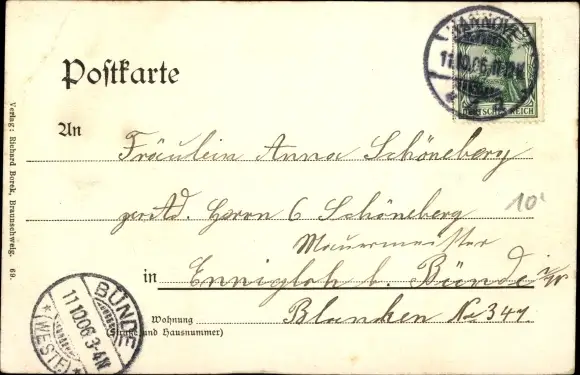 HANNOVER
11.10.06.11-12V.
DEUTSCHES REICH
Postkarte
An
Fräulein Anna Schöneberg
per Ad. Herrn C Schöneberg
10
Mauermeister
in Ennigloh b. Bünde i/W
Blanken No 347.
Wohnung
(Straße und Hausnummer)
BÜNDE
11.10.06.3-4N
(WESTF.)
Verlag: Richard Borek, Braunschweig. 69.